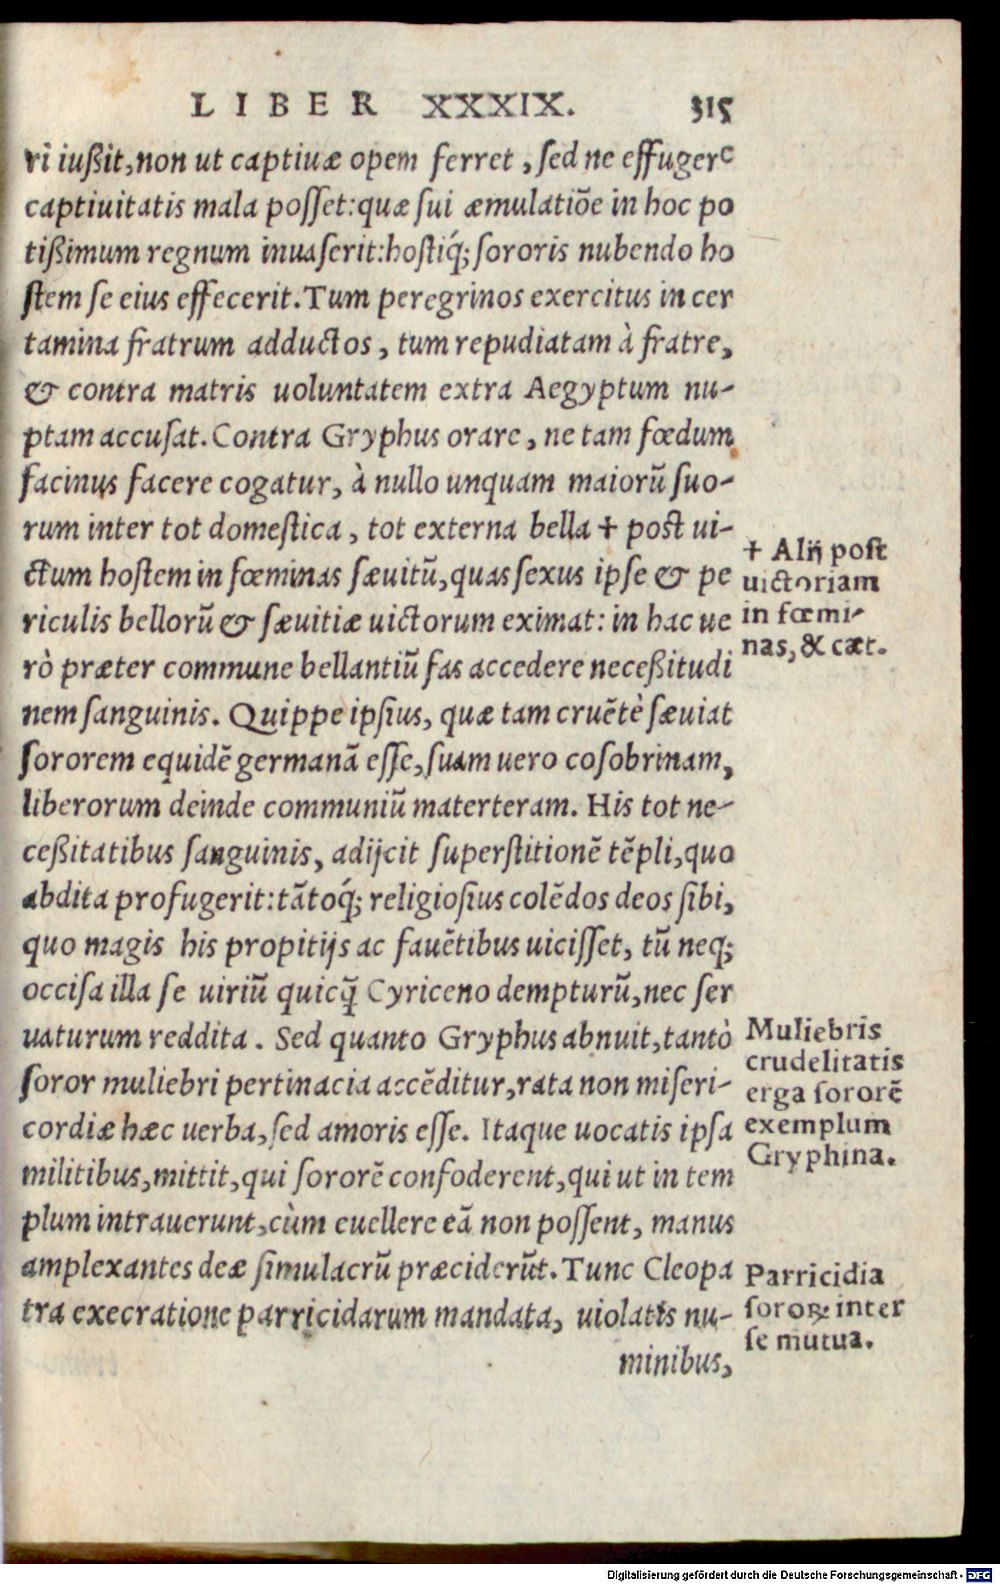 LIBER XXXIX. 315
ri iußit, non ut captiuæ opem ferret, sed ne effugere
captiuitatis mala posset: quæ sui æmulatiõe in hoc po
tißimum regnum inuaserit: hostiq́; sororis nubendo ho
stem se eius effecerit. Tum peregrinos exercitus in cer
tamina fratrum adductos, tum repudiatam à fratre,
& contra matris uoluntatem extra Aegyptum nu-
ptam accusat. Contra Gryphus orare, ne tam fœdum
facinus facere cogatur, à nullo unquam maiorũ suo-
rum inter tot domestica, tot externa bella ✝ post ui-
ctum hostem in fœminas sæuitũ, quas sexus ipse & pe
riculis bellorũ & sæuitiæ uictorum eximat: in hac ue
rò præter commune bellantiũ fas accedere neceßitudi
nem sanguinis. Quippe ipsius, quæ tam cruẽtè sæuiat
sororem equidẽ germanã esse, suam uero cosobrinam,
liberorum deinde communiũ materteram. His tot ne-
ceßitatibus sanguinis, adijcit superstitionẽ tẽpli, quo
abdita profugerit: tãtoq́; religiosius colẽdos deos sibi,
quo magis his propitijs ac fauẽtibus uicisset, tũ neq;
occisa illa se uiriũ quicq̃ Cyriceno dempturũ, nec ser
uaturum reddita. Sed quanto Gryphus abnuit, tantò
soror muliebri pertinacia accẽditur, rata non miseri-
cordiæ hæc uerba, sed amoris esse. Itaque uocatis ipsa
militibus, mittit, qui sororẽ confoderent, qui ut in tem
plum intrauerunt, cùm euellere eã non possent, manus
amplexantes deæ simulacrũ præciderũt. Tunc Cleopa
tra execratione parricidarum mandata, uiolatis nu-
minibus,
✝ Alij post
uictoriam
in fœmi-
nas, & cæt.
Muliebris
crudelitatis
erga sororẽ
exemplum
Gryphina.
Parricidia
sororꝝ inter
se mutua.
Digitalisierung gefördert durch die Deutsche Forschungsgemeinschaft - DFG